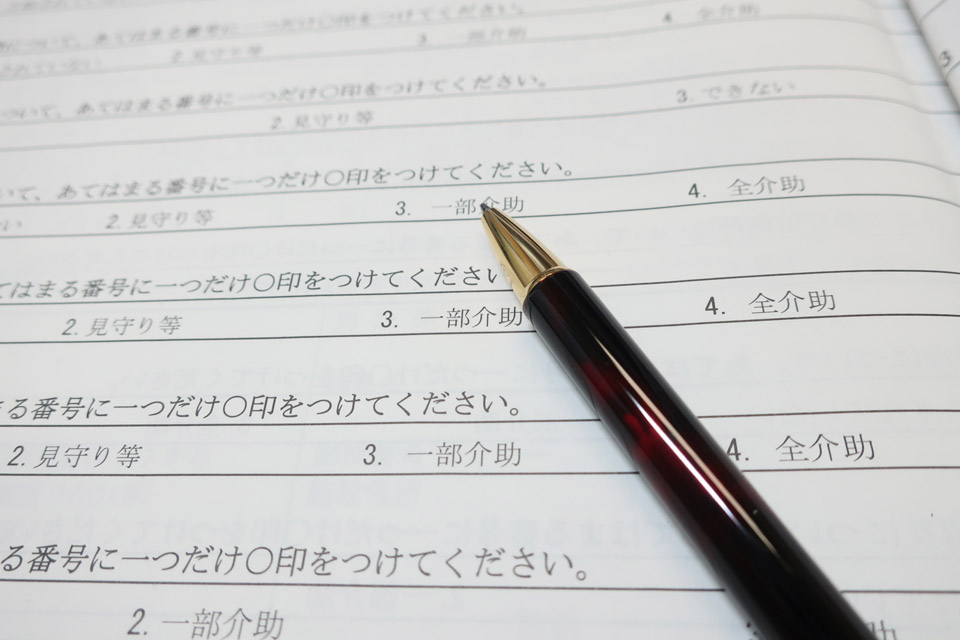 について、あてはまる番号に一つだけ〇印をつけてください。
2. 見守り等 3. 一部介助 4. 全介助
ついて、あてはまる番号に一つだけ〇印をつけてください。
2. 見守り等 3. できない
いて、あてはまる番号に一つだけ〇印をつけてください。
い 2. 見守り等 3. 一部介助 4. 全介助
てはまる番号に一つだけ〇印をつけてください
2. 見守り等 3. 一部介助 4. 全介助
まる番号に一つだけ〇印をつけてください。
2. 見守り等 3. 一部介助 4. 全介助
る番号に一つだけ〇印をつけてください。
2. 一部介助 助